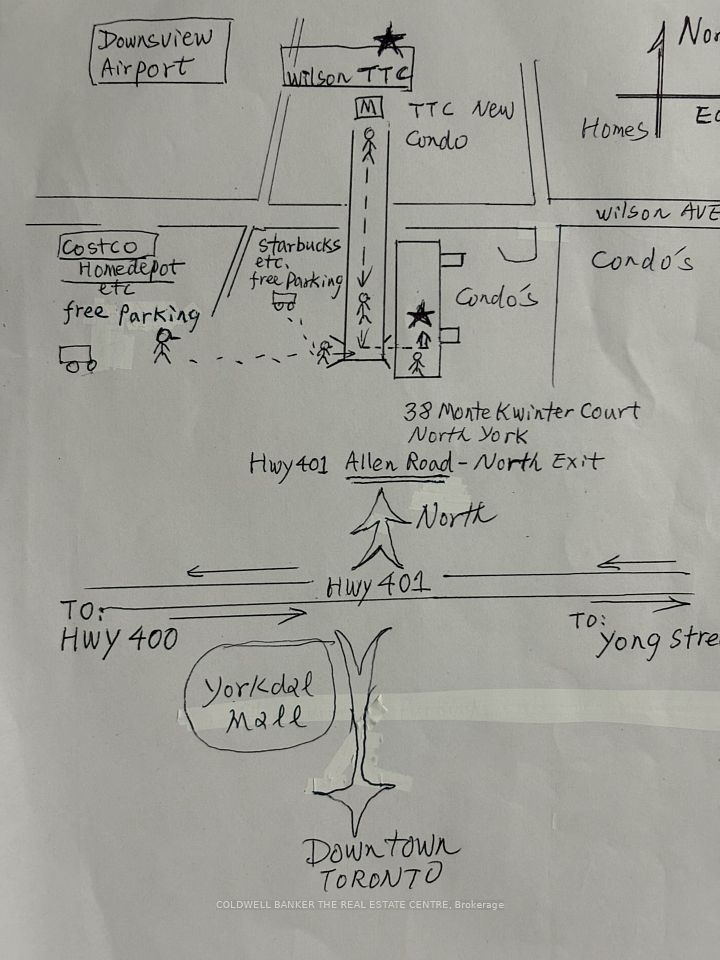 Downsview
Airport
Wilson TTC
M
TTC New
Condo
Homes
Wilson AVE
Costco
Homedepot
etc
free Parking
Starbucks
etc.
free Parking
Condo's
Condo's
38 Monte Kwinter Court
North York
Hwy 401 Allen Road - North Exit
North
Hwy 401
TO:
HWY 400
TO:
Yong Stre
Yorkdal
Mall
Downtown
TORONTO
COLDWELL BANKER THE REAL ESTATE CENTRE, Brokerage